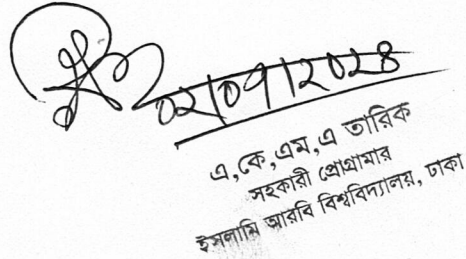 ০২/০৭/২০২৪
এ,কে,এম,এ তারিক
সহকারী প্রোগ্রামার
ইসলামি আরবি বিশ্ববিদ্যালয়, ঢাকা